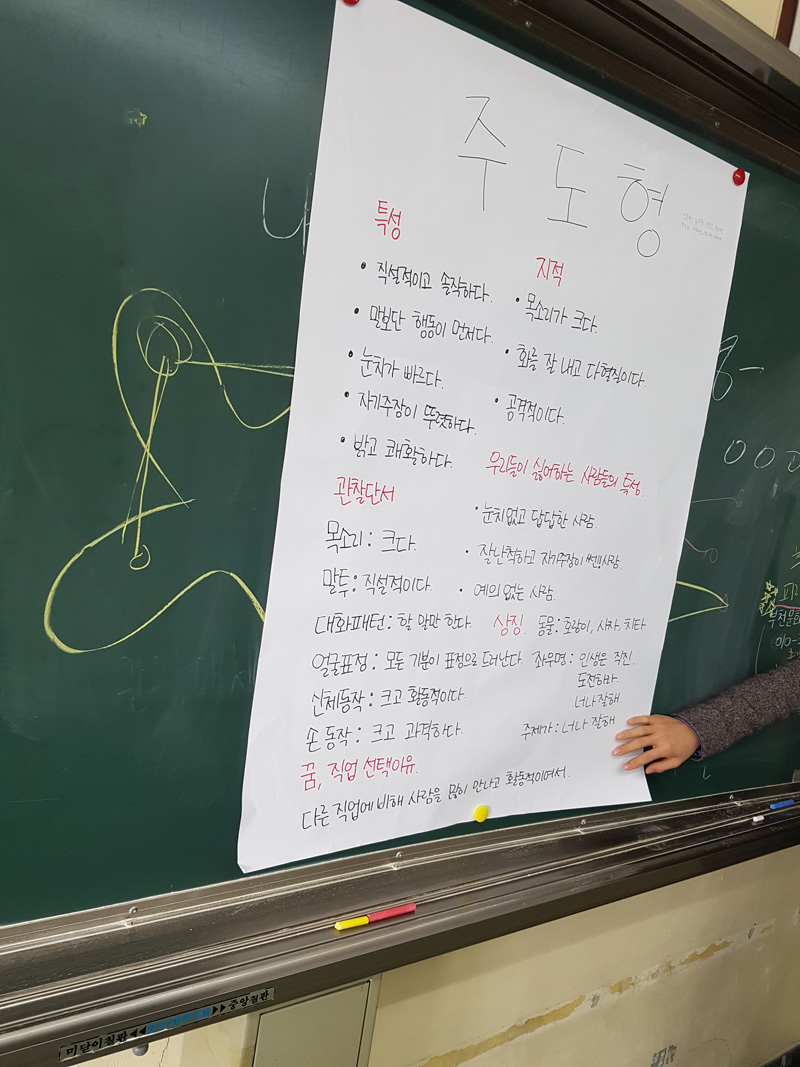 주도형
특성
• 직설적이고 솔직하다.
• 말보단 행동이 먼저다.
• 눈치가 빠르다.
• 자기주장이 뚜렷하다.
• 밝고 쾌활하다.
지적
• 목소리가 크다.
• 화를 잘 내고 다혈질이다.
• 공격적이다.
우리들이 싫어하는 사람들의 특성.
• 눈치없고 답답한 사람.
• 잘난척하고 자기주장이 쎈!! 사람
• 예의 없는 사람.
관찰단서
목소리 : 크다.
말투 : 직설적이다.
대화패턴 : 할 말만 한다.
얼굴표정 : 모든 기분이 표정으로 드러난다.
신체동작 : 크고 활동적이다.
손 동작 : 크고 과격하다.
상징.
동물 : 호랑이, 사자, 치타
좌우명 : 인생은 직진.
도전하라.
너나 잘해.
주제가 : 너나 잘해
꿈, 직업 선택이유.
다른 직업에 비해 사람을 많이 만나고 활동적이여서.
미닫이칠판 ◀◀
▶▶ 중앙칠판